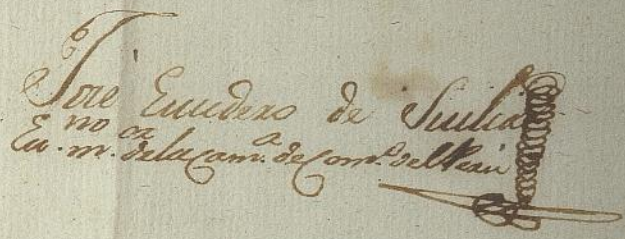 José Escudero de Sicilia
Es.no m.or dela Cam.a de Com.o del Perú